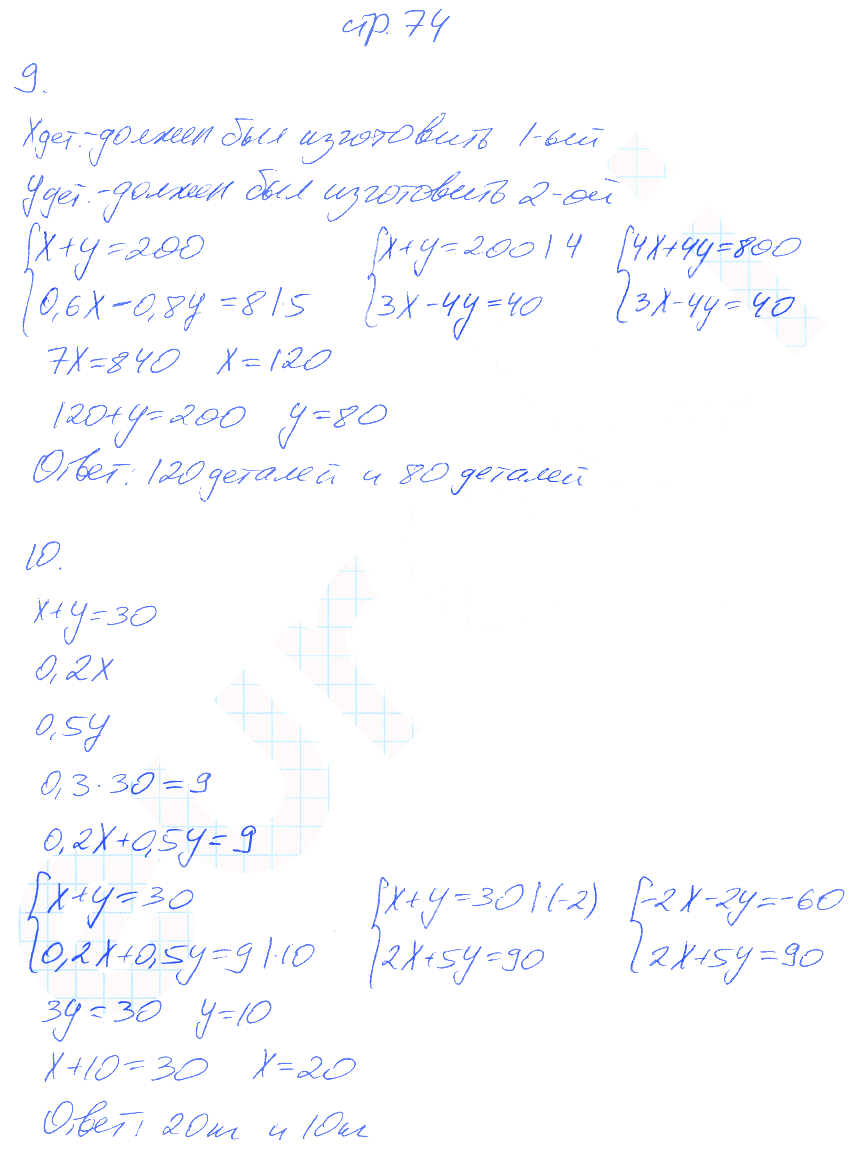 стр. 74
9.
Xдет.-должен был изготовить 1-ый
Yдет.-должен был изготовить 2-ой
{x+y=200 {x+y=200 | 4 {4x+4y=800
{0,6x-0,8y=8 | 5 {3x-4y=40 {3x-4y=40
7x=840 x=120
120+y=200 y=80
Ответ: 120 деталей и 80 деталей
10.
x+y=30
0,2x
0,5y
0,3·30=9
0,2x+0,5y=9
{x+y=30 {x+y=30 | (-2) {-2x-2y=-60
{0,2x+0,5y=9 | ·10 {2x+5y=90 {2x+5y=90
3y=30 y=10
x+10=30 x=20
Ответ: 20т и 10т